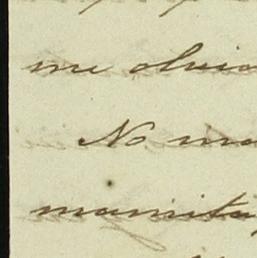 me olvid
No ma
mamita,